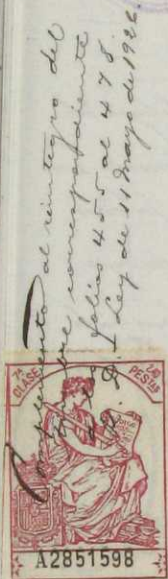 Complemento al reintegro del
que corresponde
folios 455 al 478.
Ley de 11 Mayo de 1926
7ª CLASE
PESTAS
A2851598